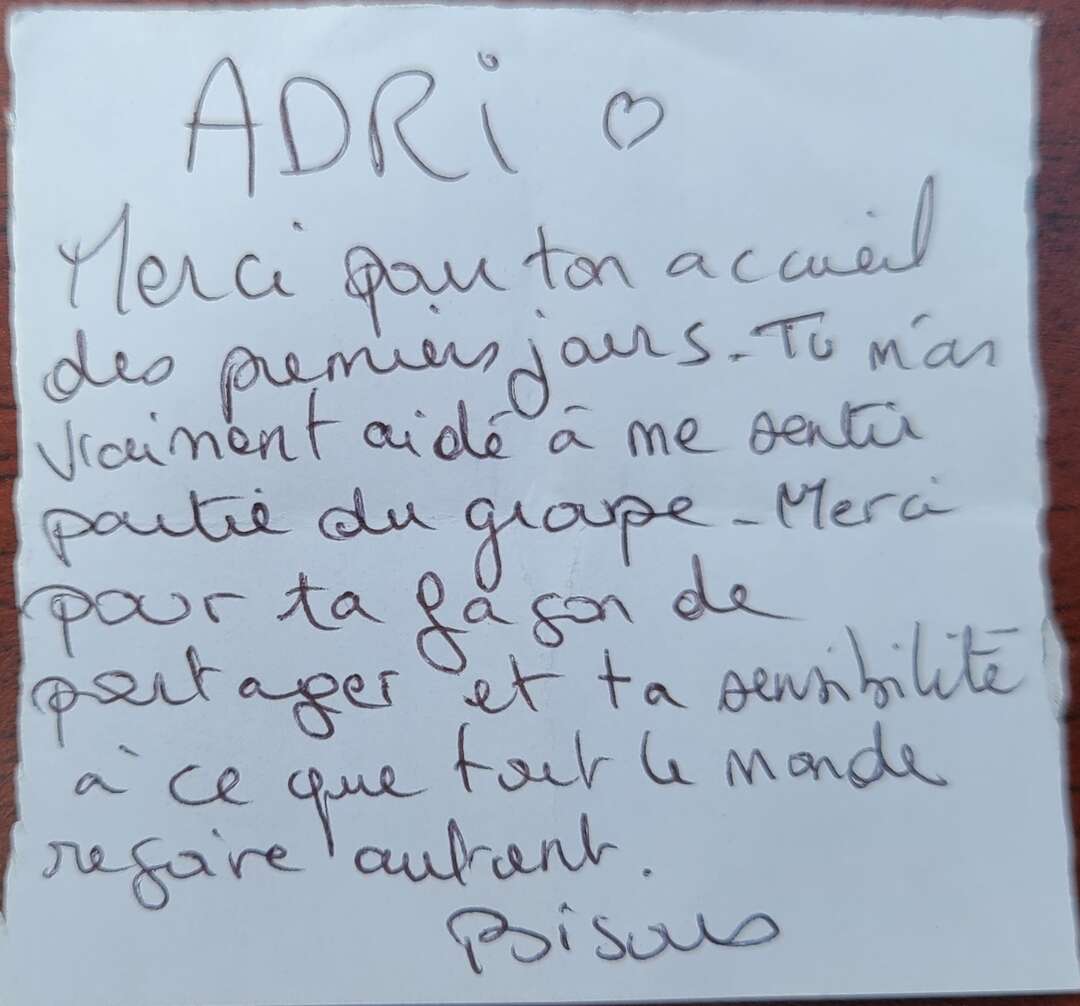 ADRi ♡
Merci pour ton accueil
des premiers jours. Tu m'as
vraiment aidé à me sentir
partie du groupe. Merci
pour ta façon de
partager et ta sensibilité
à ce que tout le monde
reçoive autant.
Bisous